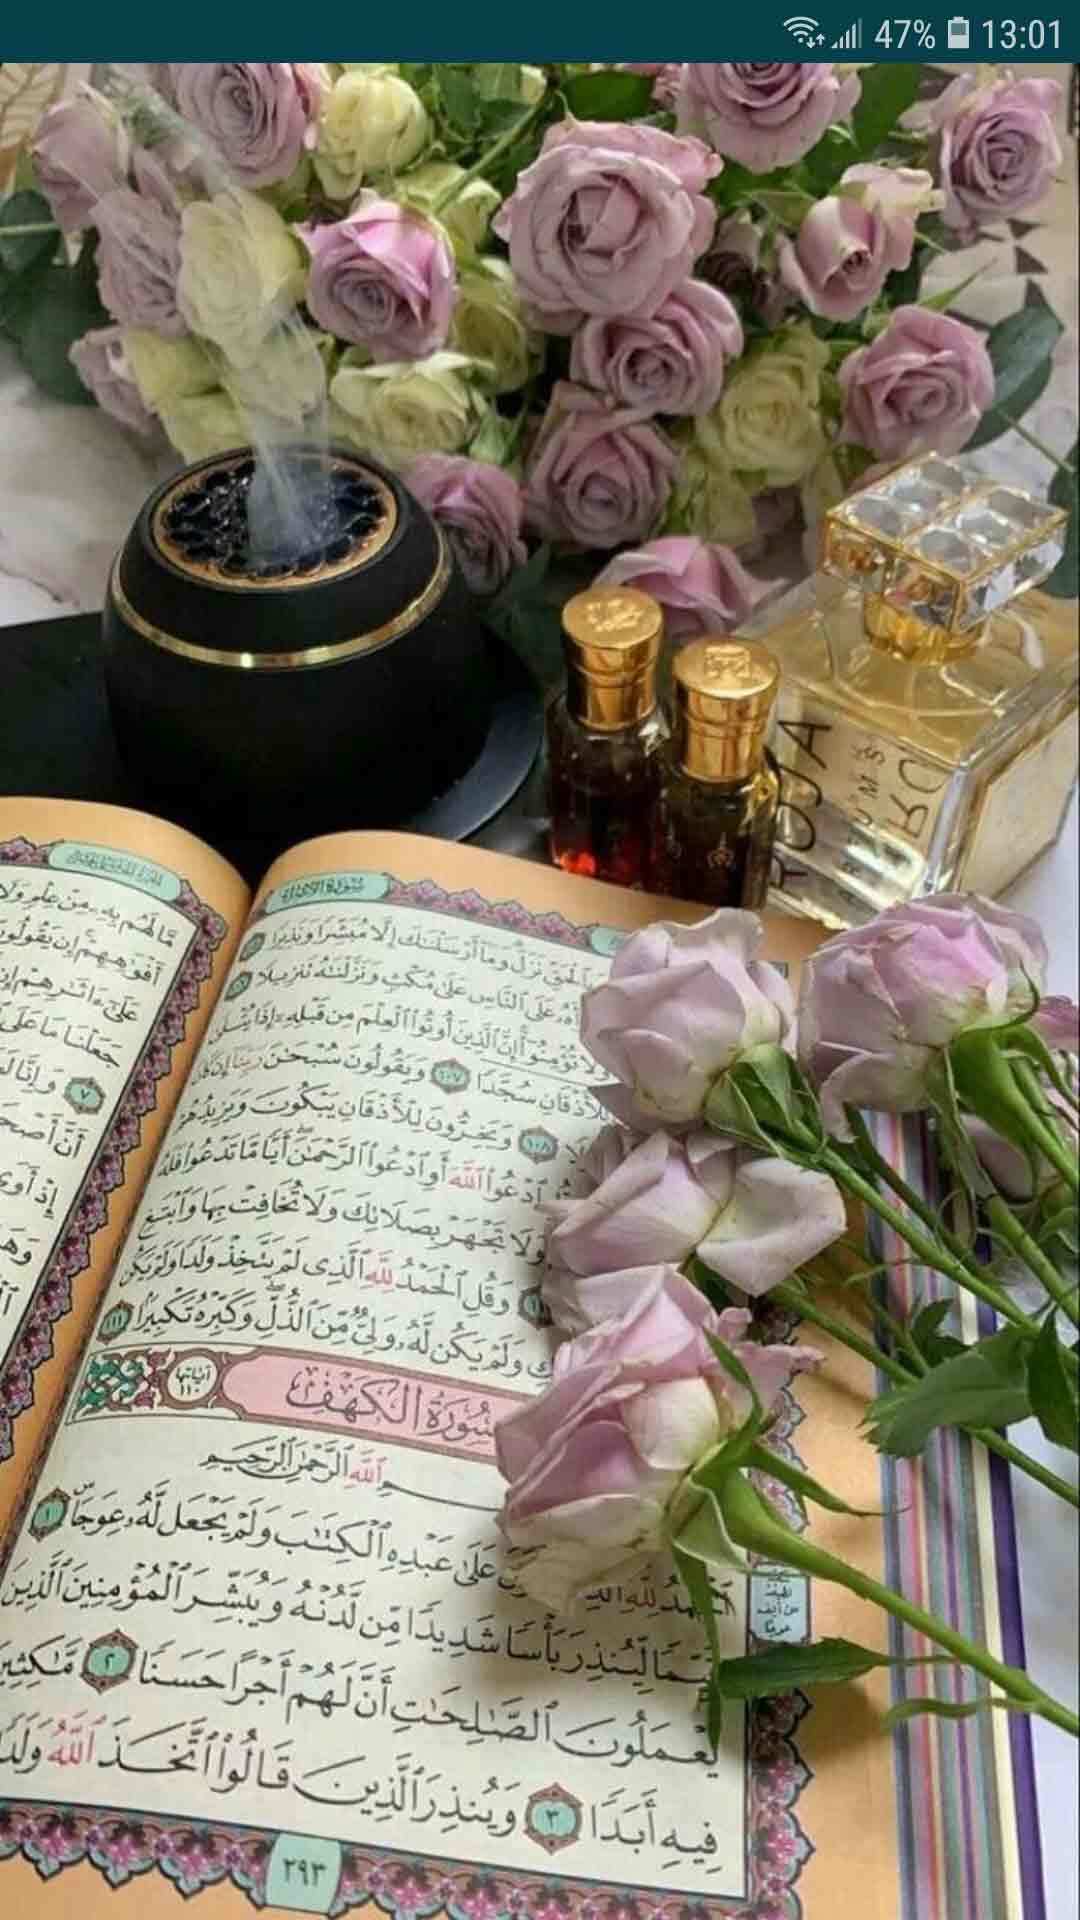 47% 13:01
TOJA
سُورَةُ الإِسْرَاءِ
بِالْحَقِّ نَزَلَ وَمَا أَرْسَلْنَاكَ إِلَّا مُبَشِّرًا وَنَذِيرًا
عَلَى النَّاسِ عَلَى مُكْثٍ وَنَزَّلْنَاهُ تَنزِيلًا
لَا تُؤْمِنُوا إِنَّ الَّذِينَ أُوتُوا الْعِلْمَ مِن قَبْلِهِ إِذَا يُتْلَى
لِلْأَذْقَانِ سُجَّدًا ١٠٧ وَيَقُولُونَ سُبْحَانَ رَبِّنَا إِن كَانَ
١٠٨ وَيَخِرُّونَ لِلْأَذْقَانِ يَبْكُونَ وَيَزِيدُهُمْ
ادْعُوا اللَّهَ أَوِ ادْعُوا الرَّحْمَٰنَ أَيًّا مَّا تَدْعُوا فَلَهُ
وَلَا تَجْهَرْ بِصَلَاتِكَ وَلَا تُخَافِتْ بِهَا وَابْتَغِ
وَقُلِ الْحَمْدُ لِلَّهِ الَّذِي لَمْ يَتَّخِذْ وَلَدًا وَلَمْ يَكُن
وَلَمْ يَكُن لَّهُ وَلِيٌّ مِّنَ الذُّلِّ وَكَبِّرْهُ تَكْبِيرًا ١١١
سُورَةُ الْكَهْفِ
آيَاتُهَا ١١٠
اللَّهِ الرَّحْمَٰنِ الرَّحِيمِ
الْحَمْدُ لِلَّهِ الَّذِي عَلَىٰ عَبْدِهِ الْكِتَابَ وَلَمْ يَجْعَل لَّهُ عِوَجًا ۜ ١
قَيِّمًا لِّيُنذِرَ بَأْسًا شَدِيدًا مِّن لَّدُنْهُ وَيُبَشِّرَ الْمُؤْمِنِينَ الَّذِينَ
يَعْمَلُونَ الصَّالِحَاتِ أَنَّ لَهُمْ أَجْرًا حَسَنًا ٢ مَّاكِثِينَ
فِيهِ أَبَدًا ٣ وَيُنذِرَ الَّذِينَ قَالُوا اتَّخَذَ اللَّهُ وَلَدًا
٢٩٣
مَّا لَهُم بِهِ مِنْ عِلْمٍ وَلَا
أَفْوَاهِهِمْ إِن يَقُولُونَ
عَلَىٰ آثَارِهِمْ إِن
جَعَلْنَا مَا عَلَى
٧ وَإِنَّا
أَنَّ أَصْحَ
إِذْ أَوَى